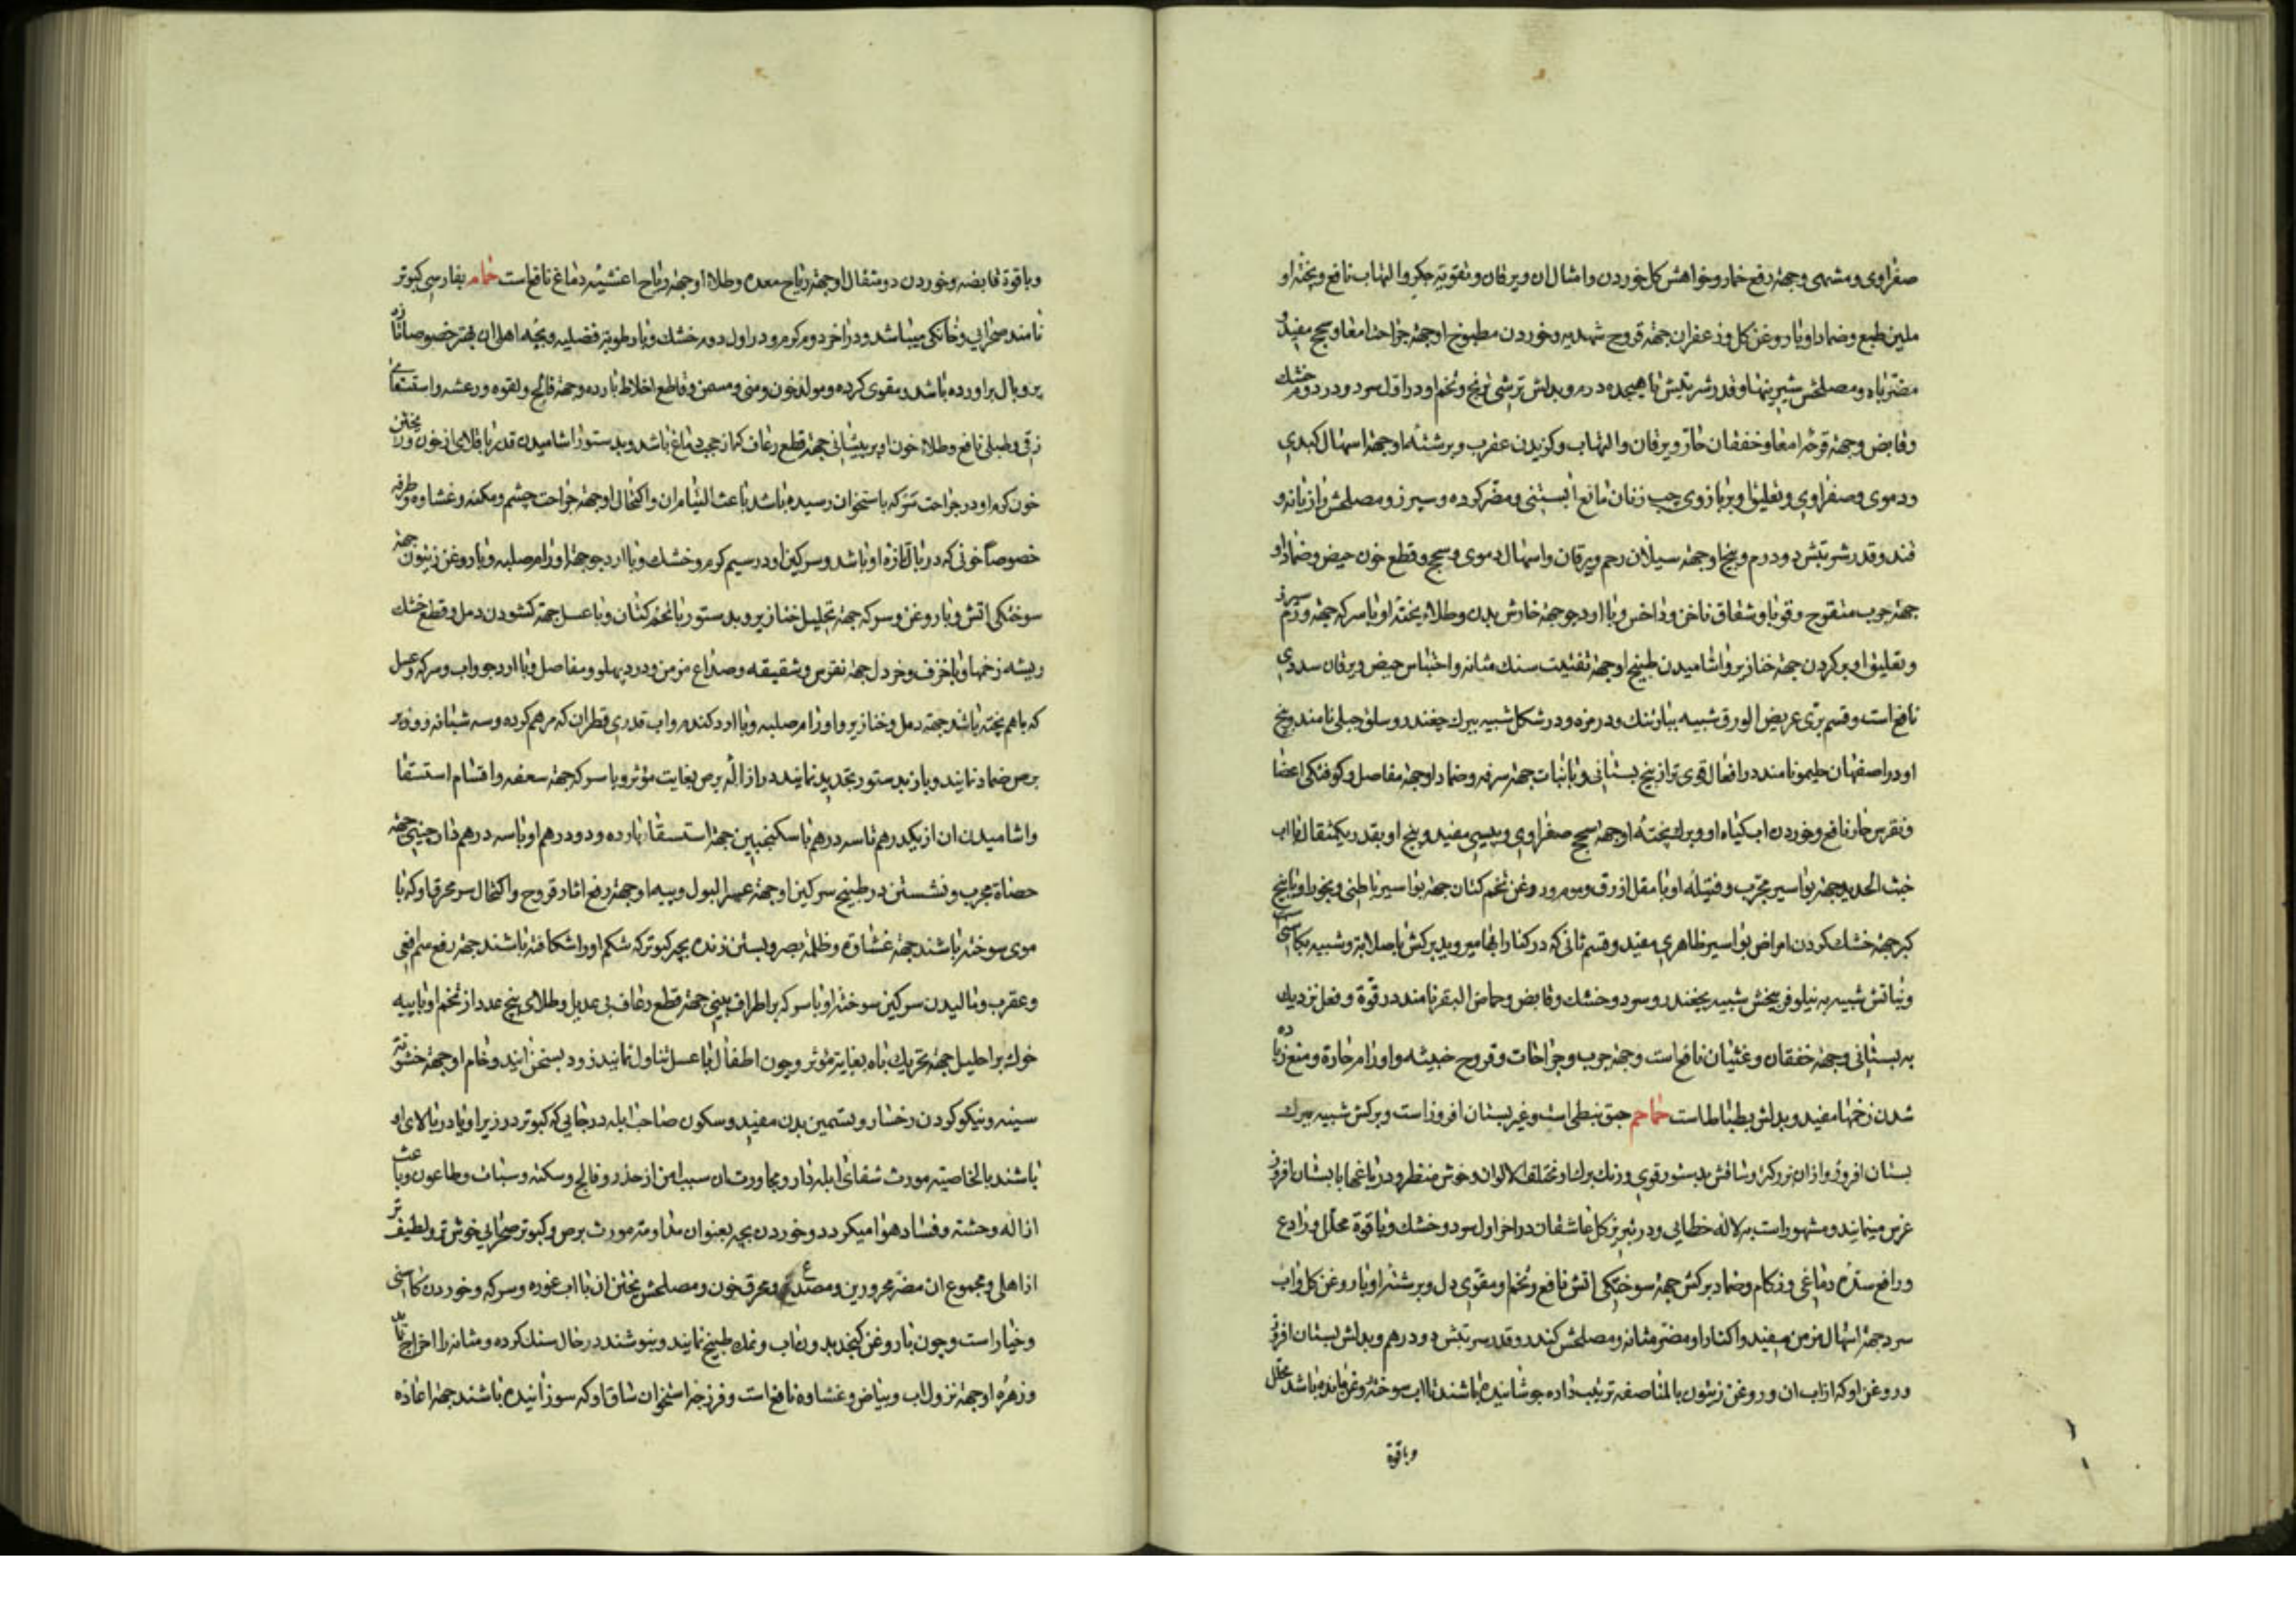 صفراوی و مشهی و جهة رفع خمار و خواهش کل خوردن و امثال ان و یرقان و تقویة جکر و التهاب نافع و پخته او
ملین طبع و ضماد او با روغن کل و زعفران جهة قروح شهدیه و خوردن مطبوخ او جهة جراحت امعا و سحج مفید و
مضر باه و مصلحش شیرینیها و قدر شربتش تا هیجده درم و بدلش ترشی ترنج و تخم او در اول سرد و در دوم خشك
و قابض و جهة قرحه امعا و خفقان حار و یرقان و التهاب و کزیدن عقرب و برشته او جهة اسهال کبدی
و دموی و صفراوی و تعلیق او بر بازوی چپ زنان مانع ابستنی و مضر کرده و سپرز و مصلحش رازیانه و
قند و قدر شربتش دو درم و بیخ او جهة سیلان رحم و یرقان و اسهال دموی و سحج و قطع خون حیض و ضماد او
جهة جرب متقرح و قوبا و شقاق ناخن و داخس و با ارد جو جهة خارش بدن و طلاء پخته او با سرکه جهة ورم سپرز
و تعلیق او بر کردن جهة خنازیر و اشامیدن طبیخ او جهة تفتیت سنك مثانه و احتباس حیض و یرقان سددی
نافع است و قسم بری عریض الورق شبیه ببارتنك و در مزه و در شکل شبیه ببرك چغندر و سلق جبلی نامند و بیخ
او در اصفهان حلیمو نامند در افعال قوی تر از بیخ بستانی و با نبات جهة سرفه و ضماد او جهة مفاصل و کوفتکی اعضا
و نقرس حار نافع و خوردن اب کیاه او و برك پخته او جهة سحج صفراوی و پیسی مفید و بیخ او بقدر یکمثقال با اب
خبث الحدید جهة بواسیر مجرب و فتیله او با مقل ازرق و موم و روغن تخم کتان جهة بواسیر باطنی و بخور او با بیخ
کبر جهة خشك کردن امراض بواسیر ظاهری مفید و قسم ثانی که در کنار ابها میروید برکش با صلابة و شبیه بکاسنی
و نباتش شبیه به نیلوفر بیخش شبیه بچغندر و سرد و خشك و قابض و حماض البقر نامند در قوة و فعل نزدیك
به بستانی و جهة خفقان و غثیان نافع است و جهة جرب و جراحات و قروح خبیثه و اورام حارة و منع زیاده
شدن زخمها مفید و بدلش بطباطا است حماحم حبق نبطی است و غیر بستان افروز است و برکش شبیه ببرك
بستان افروز و از ان بزرکتر و ساقش بدستور قوی و رنك برك او مختلف الالوان و خوش منظر و در باغها با بستان افروز
غرس مینمایند و مشهور است به لاله خطایی و در تبریز کل عاشقان در اخر اول سرد و خشك و با قوة محلل و رادع
و رافع سدۀ دماغی و زکام و ضماد برکش جهة سوختکی اتش نافع و تخم او مقوی دل و برشته او با روغن کل و اب
سرد جهة اسهال مزمن مفید و اکثار او مضر مثانه و مصلحش کندر و قدر شربتش دو درهم و بدلش بستان افروز
و روغن او که از اب ان و روغن زیتون بالمناصفه ترتیب داده جوشانیده باشند تا اب سوخته روغن بماند میباشد محلل
و با قوة
و با قوة قابضه و خوردن دو مثقال او جهة ریاح معده و طلاء او جهة ریاح اغشیه دماغ نافع است حمام بفارسی کبوتر
نامند صحرایی و خانکی میباشد و در اخر دوم کرم و در اول دوم خشك و با رطوبة فضلیه و بچه اهلی ان بهتر خصوصا تازه
پر و بال براورده باشد و مقوی کرده و مولد خون و منی و مسمن و قاطع اخلاط بارده و جهة فالج و لقوه و رعشه و استسقای
زقی و طبلی نافع و طلاء خون او بر پیشانی جهة قطع رعاف که از حجب دماغ باشد و بدستور اشامیدن قدر باقلای از خون و ریختن
خون کرم او در جراحت سر که باستخوان رسیده باشد باعث التیام ان و اکتحال او جهة جراحت چشم و مکنه و غشاوه و طرفه
خصوصا خونی که در بال تازه او باشد و سرکین او در سیم کرم و خشك و با ارد جو جهة اورام صلبه و با روغن زیتون جهة
سوختکی اتش و با روغن و سرکه جهة تحلیل خنازیر و بدستور با تخم کتان و با عسل جهة کشودن دمل و قطع خشك
ریشه زخمها و با خزف و خردل جهة نقرس و شقیقه و صداع مزمن و درد پهلو و مفاصل و با ارد جو و اب و سرکه و عسل
که باهم پخته باشد جهة دمل و خنازیر و اورام صلبه و با ارد کندم و اب قدری قطران که مرهم کرده و سه شبانه روز بر
برص ضماد نمایند و باز بدستور تجدید نمایند در ازاله برص بغایت مؤثر و با سرکه جهة سعفه و اقسام استسقا
و اشامیدن ان از یکدرهم تا سه درهم با سکنجبین جهة استسقاء بارده و دو درهم او با سه درهم دارچینی جهة
حصاة مجرب و نشستن در طبیخ سرکین او جهة عسر البول و پیه او جهة رفع اثار قروح و اکتحال سر محرق او که با
موی سوخته باشند جهة غشاوة و ظلمة بصر و بستن زنده بچه کبوتر که شکم او را شکافته باشند جهة رفع سم افعی
و عقرب و مالیدن سرکین سوخته او با سرکه بر اطراف بینی جهة قطع رعاف بی عدیل و طلای پنج عدد از تخم او با پیه
خوك بر احلیل جهة تحریك باه بغایة مؤثر و چون اطفال با عسل تناول نمایند زود بسخن ایند و خام او جهة خشونة
سینه و نیکو کردن رخسار و تسمین بدن مفید و سکون صاحب ابله در جایی که کبوتر در زیر او یا در بالای او
باشند بالخاصیة مورث شفای ابله دار و مجاورت ان سبب امن از خدر و فالج و سکته و سبات و طاعون و وبا و باعث
ازاله وحشة و فساد هوا میکردد و خوردن بچه بعنوان مداومة مورث برص و کبوتر صحرایی خوش تر و لطیف تر
از اهلی و مجموع ان مضر محرورین و مصدع و محرق خون و مصلحش پختن ان با اب غوره و سرکه و خوردن کاسنی
و خیار است و چون با روغن کنجد بدون اب و نمك طبیخ نمایند و بنوشند در حال سنك کرده و مثانه را اخراج نماید
و زهره او جهة نزول اب و بیاض و غشاوه نافع است و فرزجه استخوان ساق او که سوزانیده باشند جهة اعاده